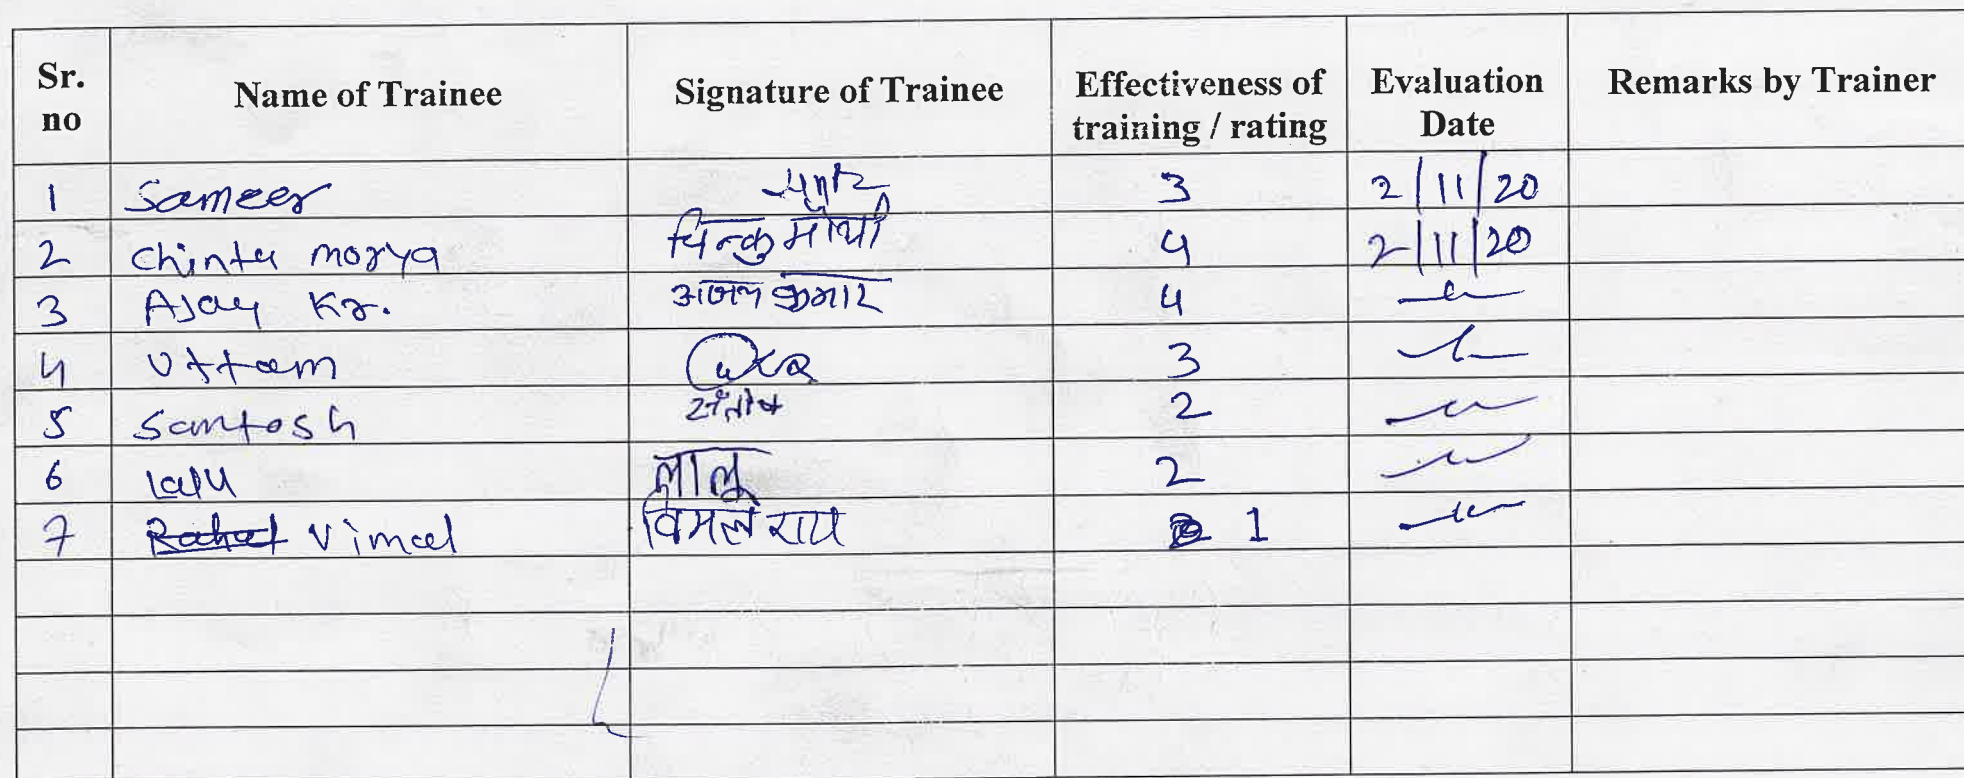 Sr. no Name of Trainee Signature of Trainee Effectiveness of training / rating Evaluation Date Remarks by Trainer
1 Sameer 3 2/11/20
2 Chintu morya चिन्कु मौर्या 4 2/11/20
3 Ajay Kr. अजय कुमार 4 —〃—
4 Uttam 3 —〃—
5 Santosh संतोष 2 —〃—
6 Lalu लालू 2 —〃—
7 Rahul Vimal विमल राय 2 1 —〃—